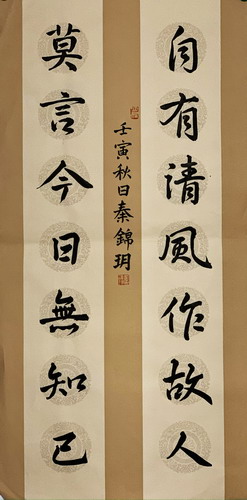 自有清風作故人
壬寅秋日秦錦玥
莫言今日無知己